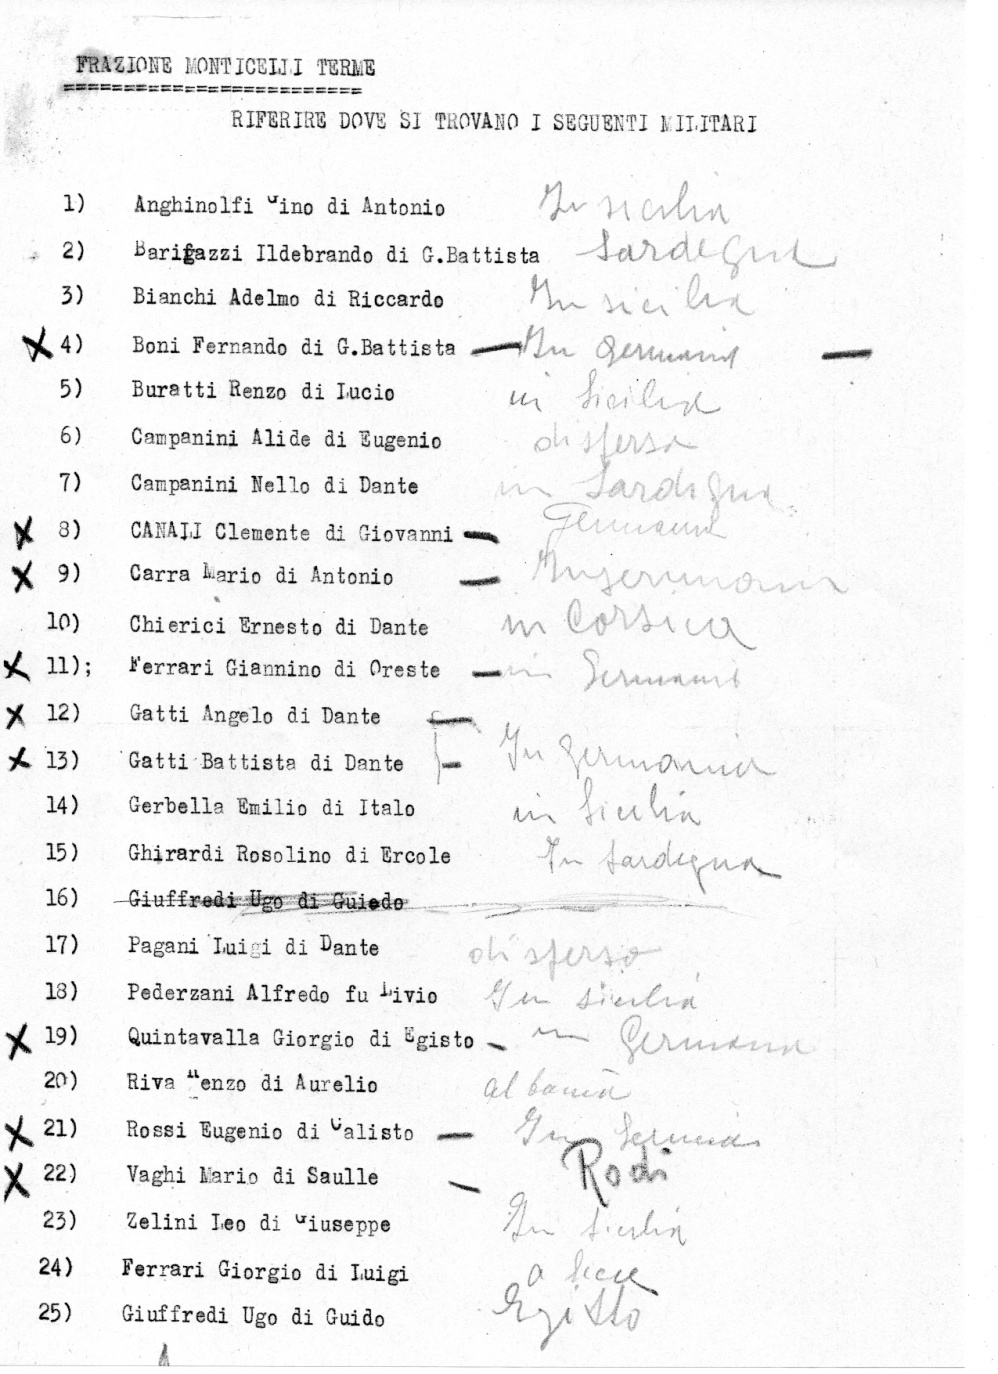 FRAZIONE MONTICELLI TERME
=========================
RIFERIRE DOVE SI TROVANO I SEGUENTI MILITARI
1) Anghinolfi Gino di Antonio In sicilia
2) Barigazzi Ildebrando di G.Battista Sardegna
3) Bianchi Adelmo di Riccardo In sicilia
X 4) Boni Fernando di G.Battista — In germania —
5) Buratti Renzo di Lucio in Sicilia
6) Campanini Alide di Eugenio disperso
7) Campanini Nello di Dante in Sardegna
X 8) CANALI Clemente di Giovanni — Germania
X 9) Carra Mario di Antonio — In germania
10) Chierici Ernesto di Dante in Corsica
X 11); Ferrari Giannino di Oreste — in Germania
X 12) Gatti Angelo di Dante —
X 13) Gatti Battista di Dante — In germania
14) Gerbella Emilio di Italo in Sicilia
15) Ghirardi Rosolino di Ercole In Sardegna
16) Giuffredi Ugo di Guiedo
17) Pagani Luigi di Dante disperso
18) Pederzani Alfredo fu Livio In sicilia
X 19) Quintavalla Giorgio di Egisto — in Germania
20) Riva Renzo di Aurelio albania
X 21) Rossi Eugenio di Calisto — In Germania
X 22) Vaghi Mario di Saulle — Rodi
23) Zelini Leo di Giuseppe In sicilia
24) Ferrari Giorgio di Luigi a
25) Giuffredi Ugo di Guido Egitto